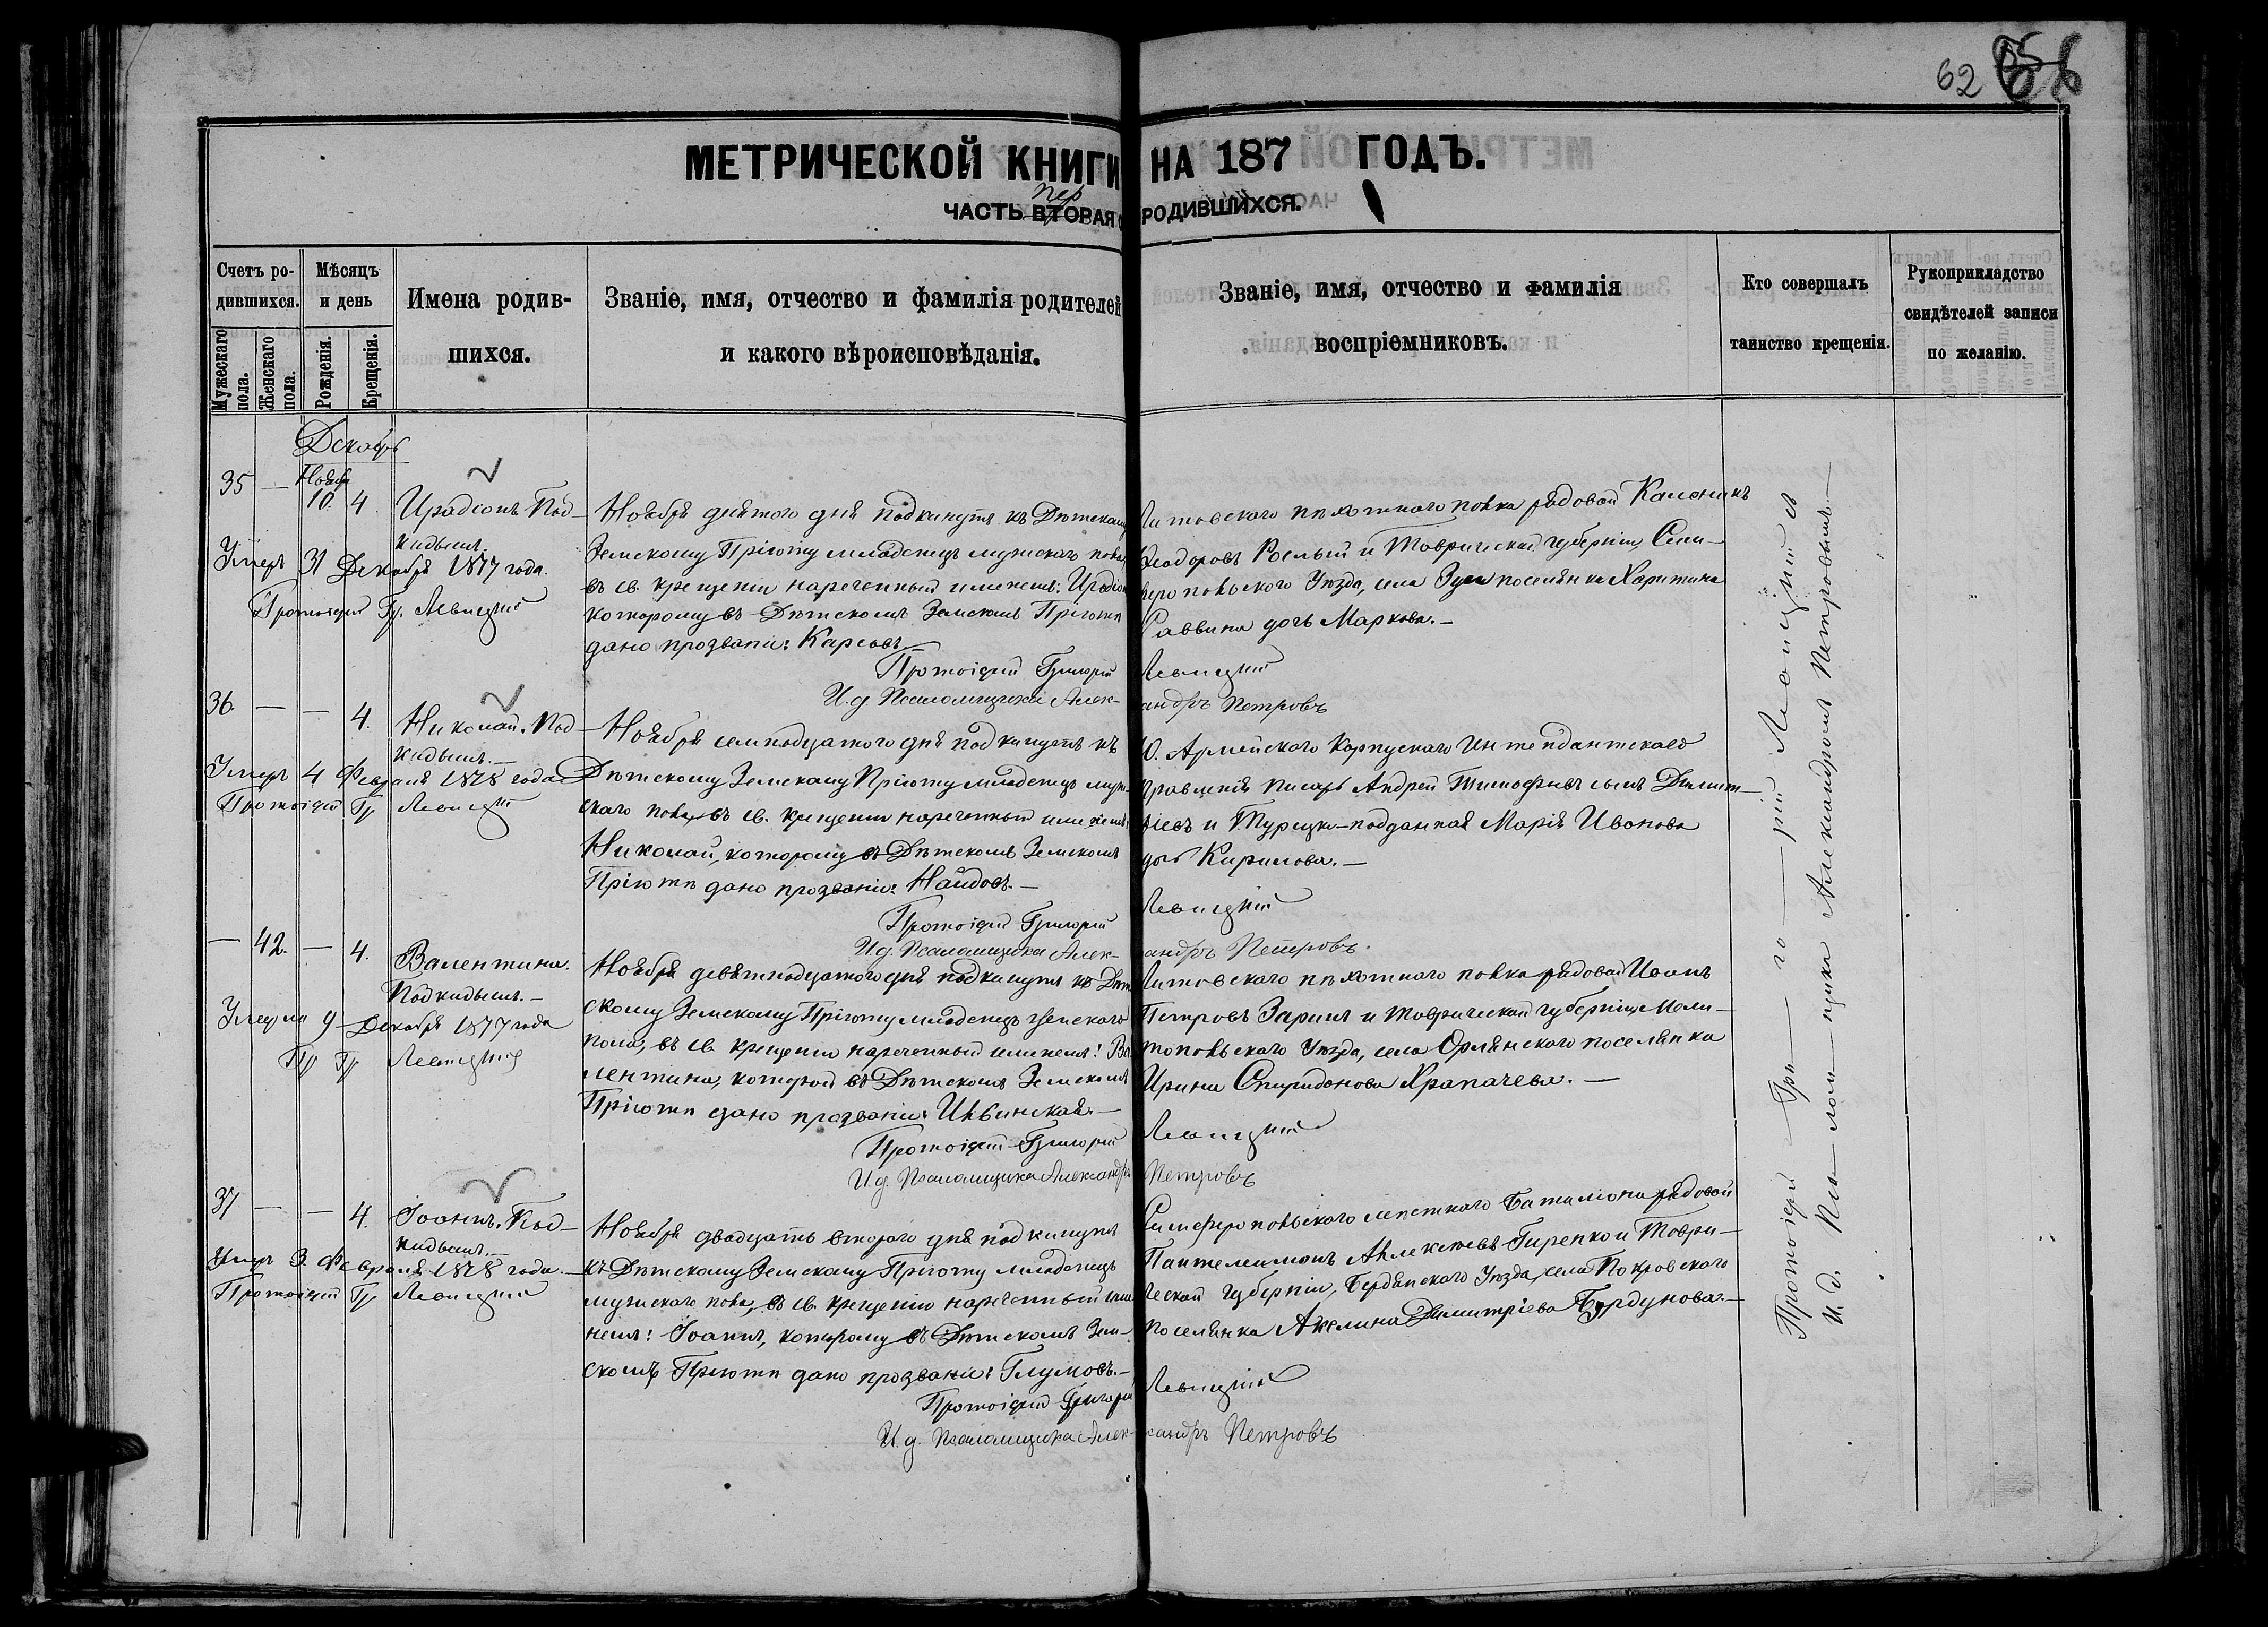 62
МЕТРИЧЕСКОЙ КНИГИ НА 187 ГОДЪ.
пер
ЧАСТЬ ВТОРАЯ О РОДИВШИХСЯ.
Счетъ родившихся.
Мужескаго пола.
Женскаго пола.
Мѣсяцъ и день
Рожденія.
Крещенія.
Имена родившихся.
Званіе, имя, отчество и фамилія родителей
и какого вѣроисповѣданія.
Званіе, имя, отчество и фамилія
воспріемниковъ.
Кто совершалъ
таинство крещенія.
Рукоприкладство
свидѣтелей записи
по желанію.
Декабрь
35 — Ноября 10. 4
Иродіонъ Под-
кидышъ.
Умеръ 31 Декабря 1877 года.
Протоіерей Гр. Левицкій
Ноября девятого дня подкинутъ къ Дѣтскому
Земскому Пріюту младенецъ мужскаго пола,
въ св. крещеніи нареченный именемъ: Иродіонъ
которому въ Дѣтскомъ Земскомъ Пріютѣ
дано прозваніе: Карсовъ.
Протоіерей Григорій Левицкій
И. д. Псаломщика Александръ Петровъ
Литовскаго пѣхотнаго полка рядовой Калоникъ
Ѳеодоровъ Рослый и Таврической губерніи, Сим-
феропольского Уѣзда, села Зуи поселянка Харитина
Саввина дочь Маркова.—
36. — — 4.
Николай. Под-
кидышъ.—
Умеръ 4 Февраля 1878 года
Протоіерей Гр Левицкій
Ноября семнадцатого дня подкинутъ къ
Дѣтскому Земскому Пріюту младенецъ муж-
скаго пола, въ св. крещеніи нареченный именемъ:
Николай, которому въ Дѣтскомъ Земскомъ
Пріютѣ дано прозваніе: Найдовъ.—
Протоіерей Григорій Левицкій
И. д. Псаломщика Александръ Петровъ.
10. Армейского Корпуснаго Интендантскаго
Управленія писарь Андрей Тимофѣевъ сынъ Димит-
ріевъ и Турецко-подданная Марія Иванова
дочь Кирилова.—
— 42. — 4.
Валентина.
Подкидышъ.—
Умерла 9 Декабря 1877 года
Пр Гр Левицкій
Ноября девятнадцатого дня подкинутъ къ Дѣт-
скому Земскому Пріюту младенецъ женскаго
пола, въ св. крещеніи нареченный именемъ: Ва-
лентина, которой въ Дѣтскомъ Земскомъ
Пріютѣ дано прозваніе: Ильинская.—
Протоіерей Григорій Левицкій
И. д. Псаломщика Александръ Петровъ
Литовскаго пѣхотнаго полка рядовой Иванъ
Петровъ Заринъ и Таврической губерніи, Мели-
топольскаго Уѣзда, села Орлянского поселянка
Ирина Спиридонова Храпачева.—
37 — — 4.
Іоаннъ. Под-
кидышъ.—
Умеръ 3 Февраля 1878 года.
Протоіерей Гр Левицкій
Ноября двадцать второго дня подкинутъ
къ Дѣтскому Земскому Пріюту младенецъ
мужскаго пола, въ св. крещеніи нареченный име-
немъ: Іоаннъ, которому въ Дѣтскомъ Зем-
скомъ Пріютѣ дано прозваніе: Глумовъ.—
Протоіерей Григорій Левицкій
И. д. Псаломщика Александръ Петровъ
Симферопольского мѣстнаго Баталіона рядовой
Пантелеимонъ Алексѣевъ Гирепко и Таври-
ческой губерніи, Бердянского Уѣзда, села Покровского
поселянка Акелина Димитріева Бурдунова.—
Протоіерей — Гри — го — рій Левицкій съ
И. д. Пса — лом — щика Александромъ Петровымъ.—